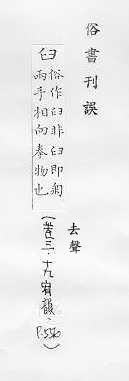 俗書刊誤
去聲
臼
俗作臼非臼即匊
兩手相向奉物也
(卷三·十九宥韻·